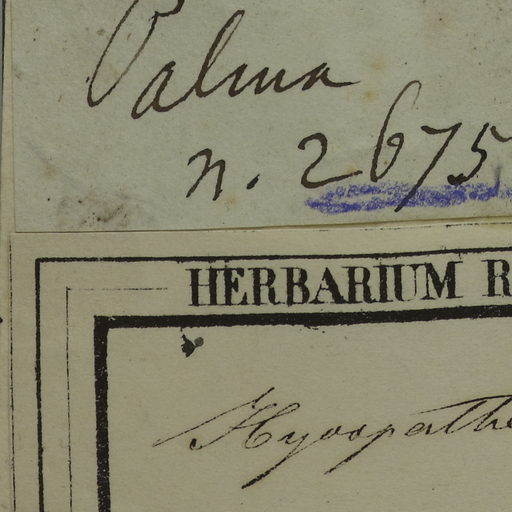 Palma
n. 2675
HERBARIUM R
Hyospathe